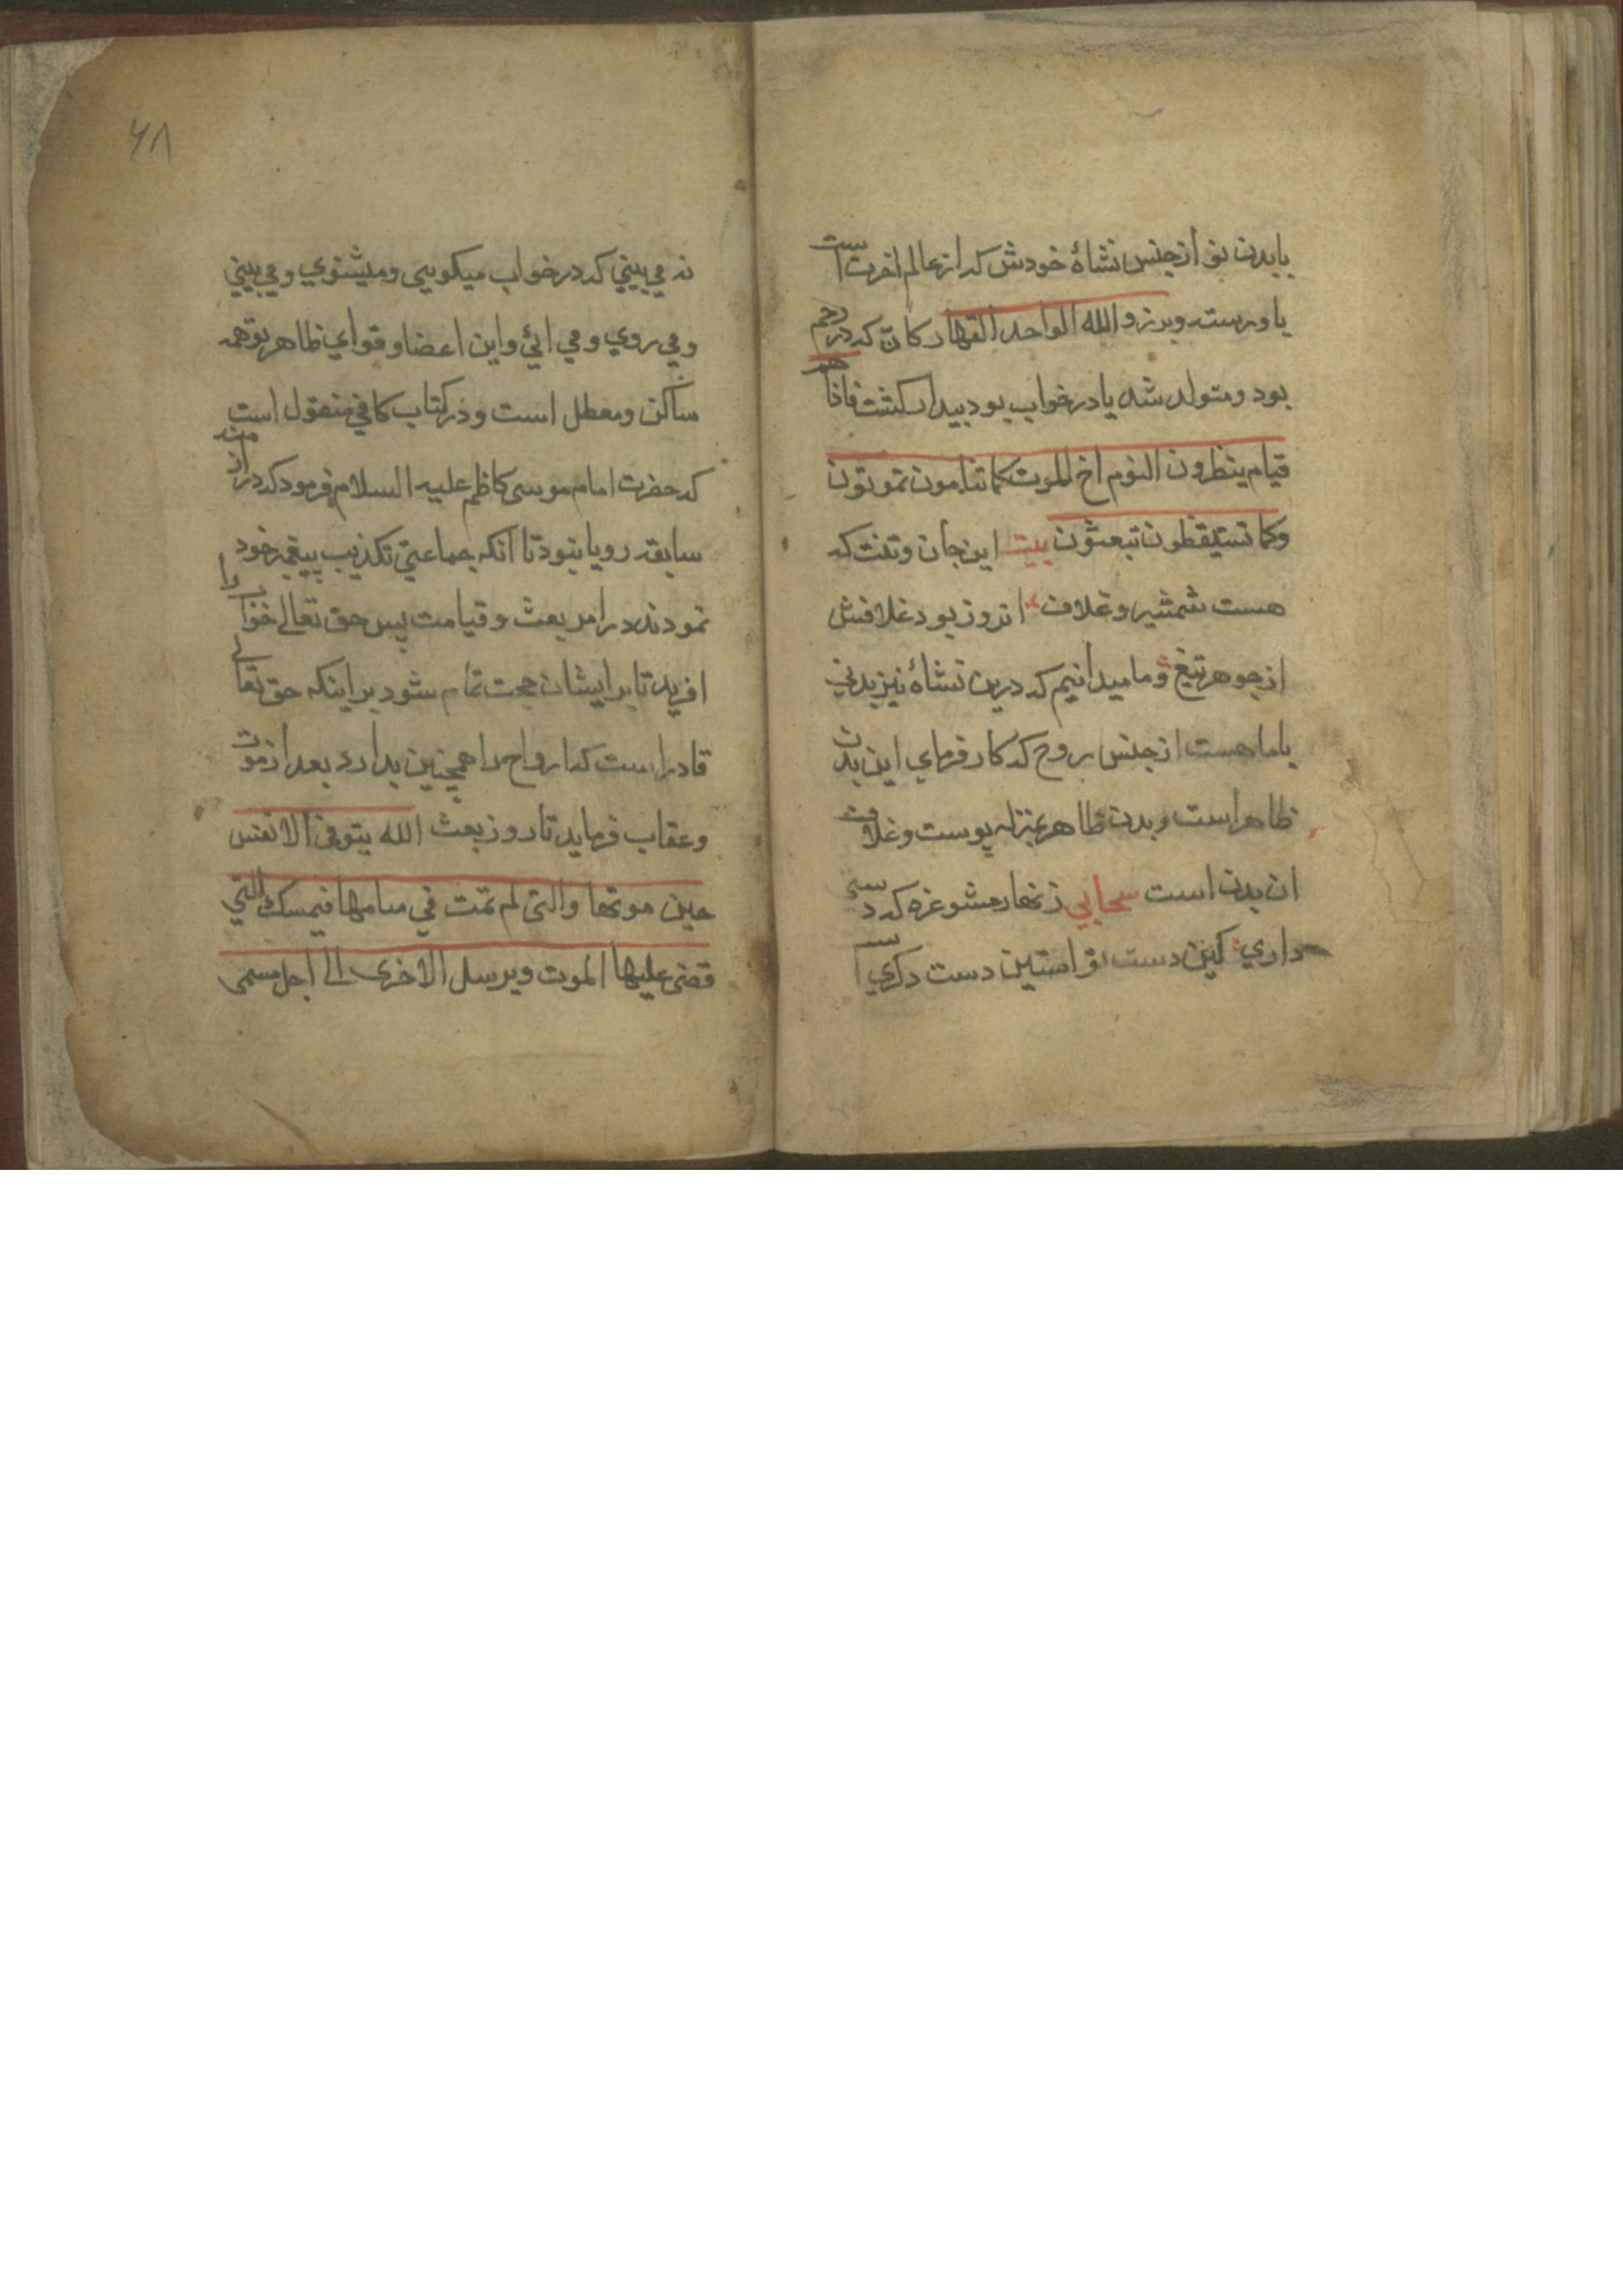 بابدن نو از جنس نشاهٔ خودش که از عالم اخرت است
با و رسته وبرزوالله الواحد القهار کان که در رحم
بود و متولد شد یا در خواب بود بیدار کشت فاذا هم
قیام ینظرون النوم اخ الموت کما تنامون تموتون
وکما تستیقظون تبعثون بیت این جان و تنت که
هست شمشیر و غلاف انروز بود غلافش
از جوهر تیغ و ما میدانیم که درین نشاه نیز بدنی
باما هست از جنس روح که کار فرمای این بدن
ظاهر است و بدن ظاهر بمنزله پوست و غلاف
ان بدن است سحابی زنهار مشو غره که دستی
داری کین دست تو استین دست دکری است
۶۸
نه می بینی که در خواب میکویی و میشنوی و می بینی
و می روی و می ائی و این اعضا و قوای ظاهر تو همه
ساکن و معطل است و در کتاب کافی منقول است
که حضرت امام موسی کاظم علیه السلام فرمود که در ازمنه
سابقه رویا نبود تا انکه جماعتی تکذیب پیغمبر خود
نمودند در امر بعث و قیامت پس حق تعالی خواب را
افرید تا بر ایشان حجت تمام شود بر اینکه حق تعالی
قادر است که ارواح را همچنین بدارد بعد از موت
و عقاب فرماید تا روز بعث الله یتوفی الانفس
حین موتها والتی لم تمت فی منامها فیمسک التی
قضی علیها الموت ویرسل الاخری الی اجل مسمی